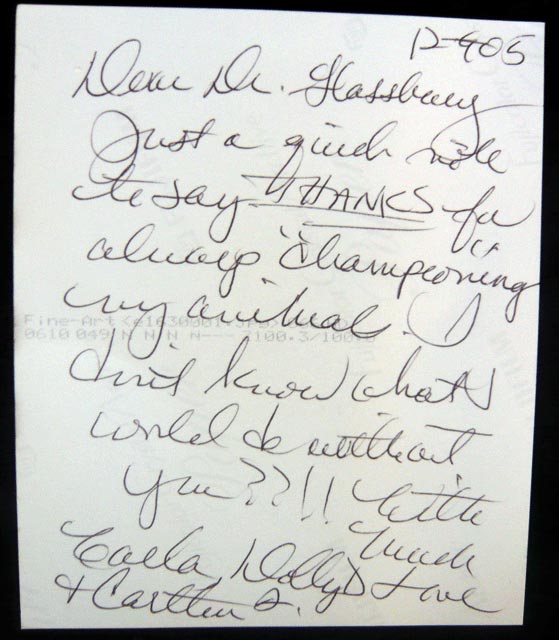 12-905
Dear Dr. Glassburg
Just a quick note
to say THANKS for
always "championing"
my animals. I
Fine-Art
0610 049 N N N N--- 100.3/100
don't know what I
would do without
you??!! With
much
Carla, Dolly Love
&